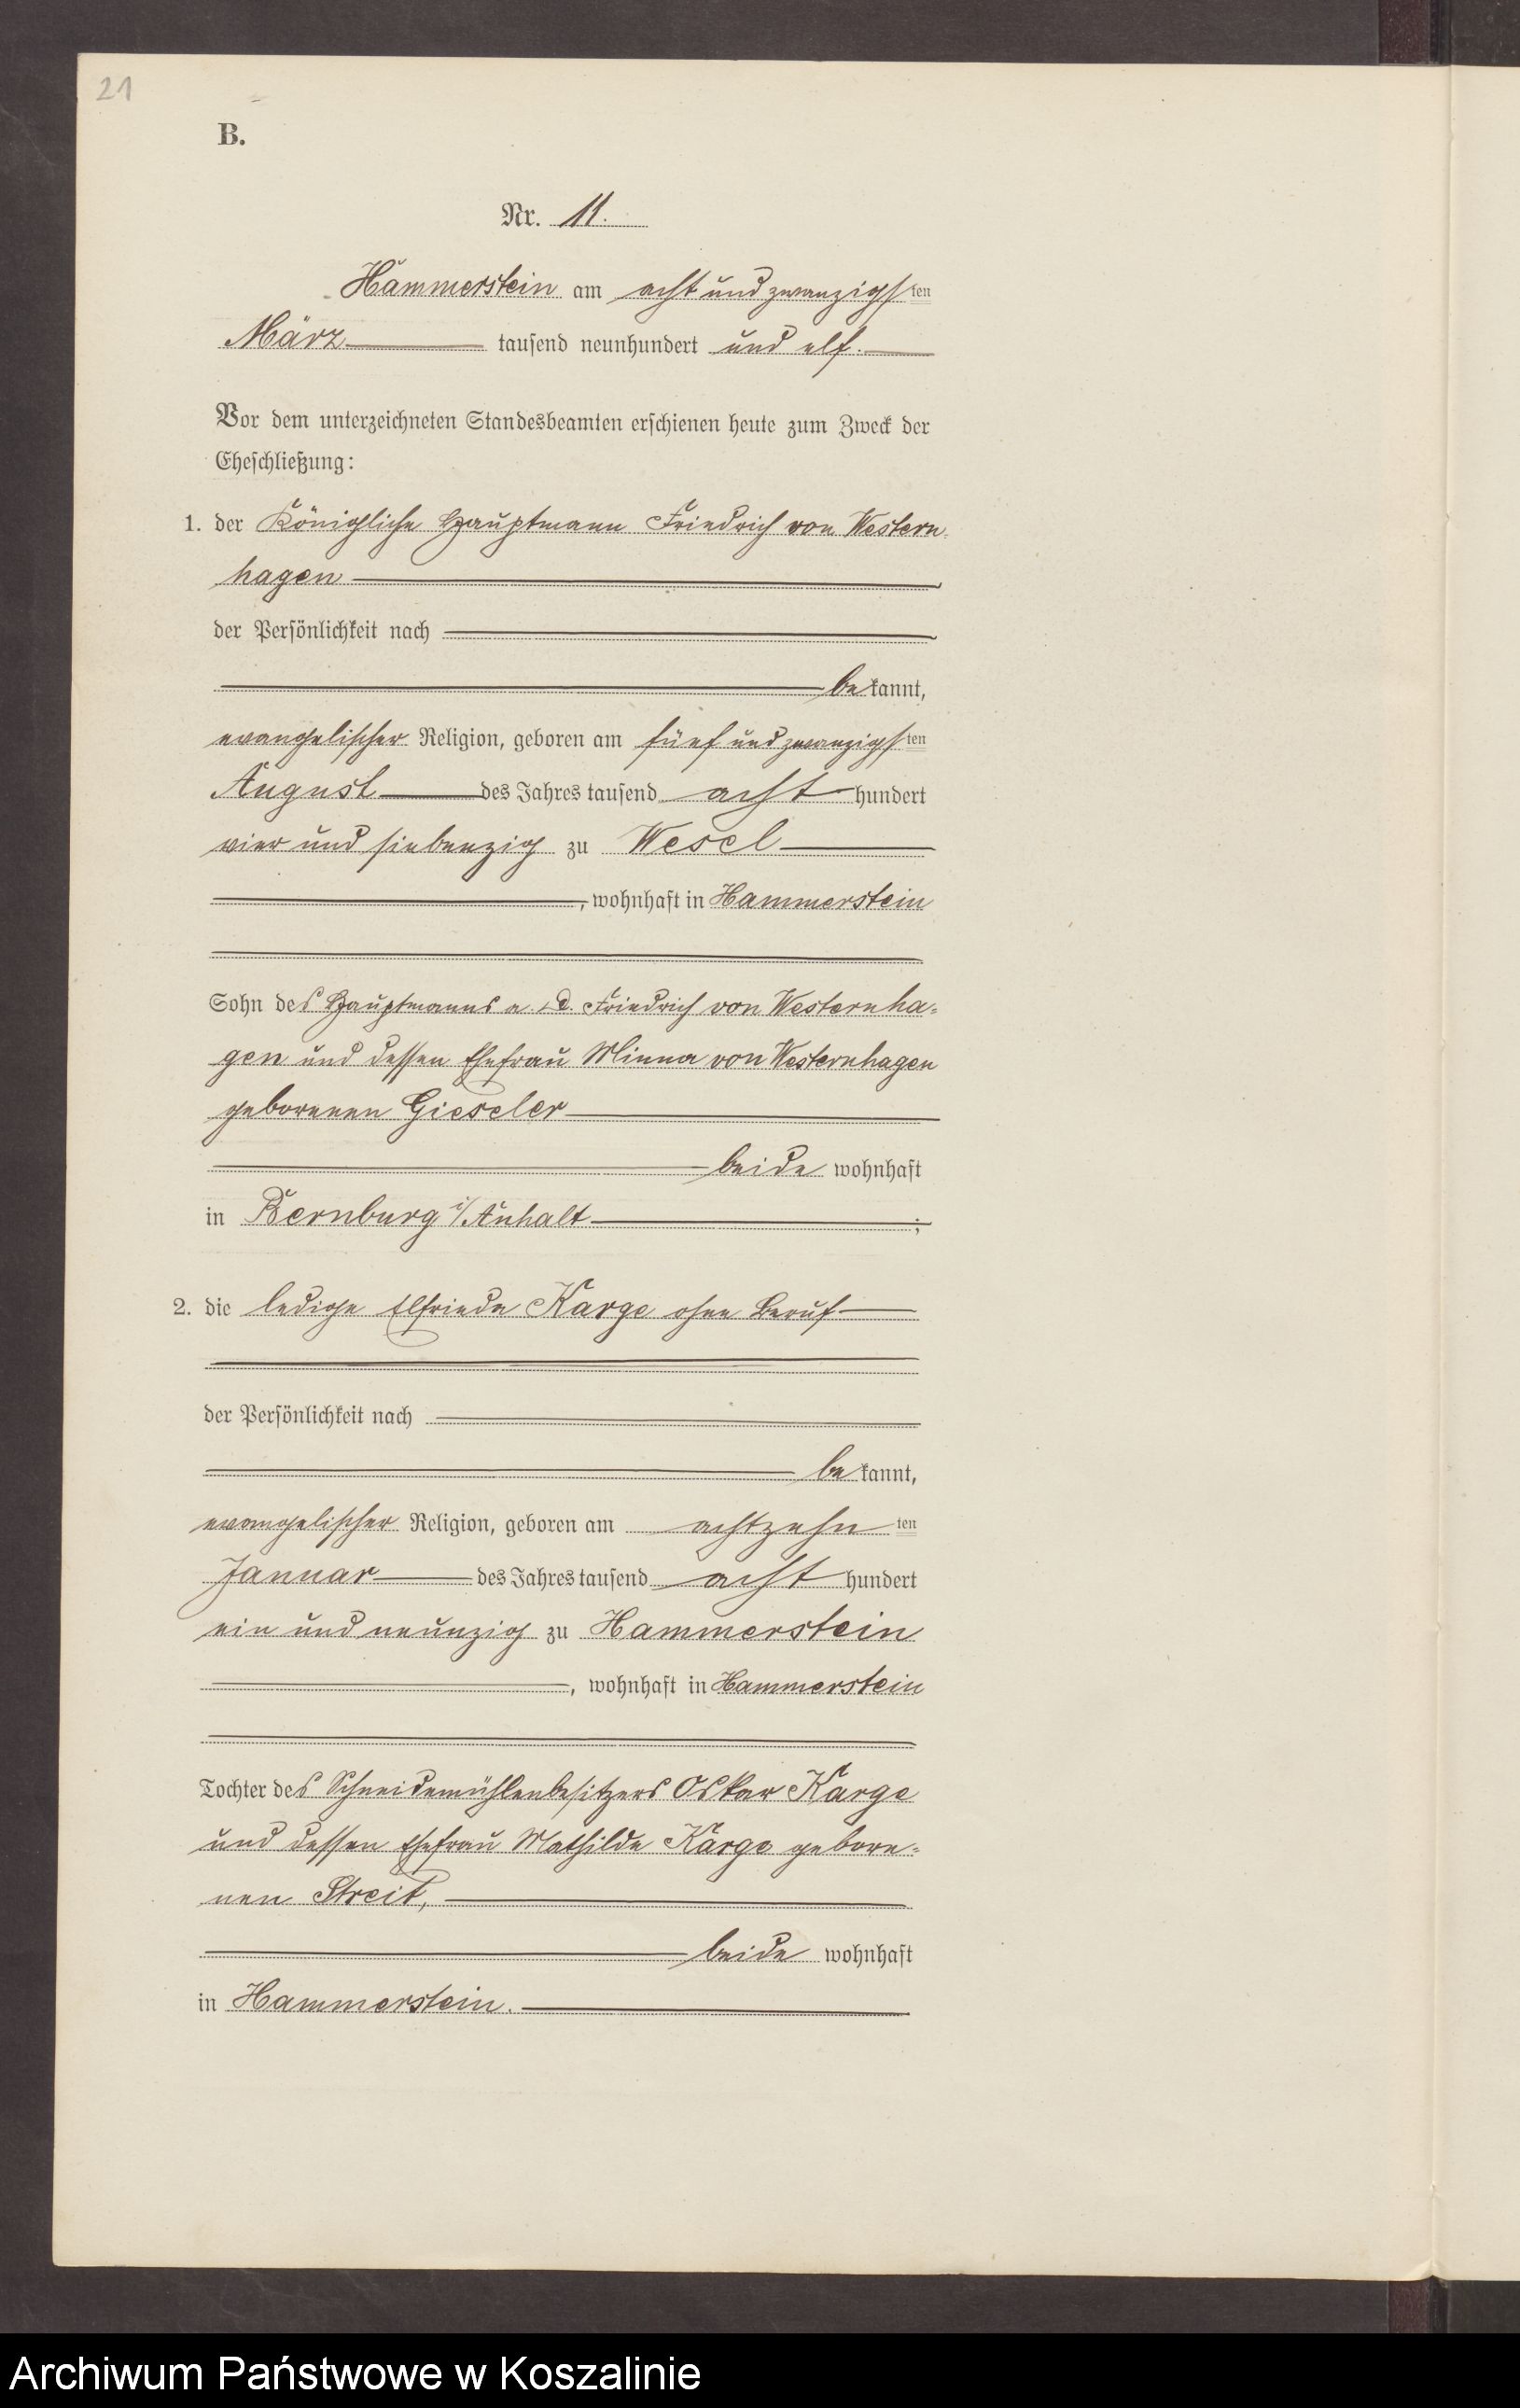 21
B.
Nr. 11.
Hammerstein am acht und zwanzigsten
März tausend neunhundert und elf.
Vor dem unterzeichneten Standesbeamten erschienen heute zum Zweck der
Eheschließung:
1. der Königliche Hauptmann Friedrich von Western-
hagen
der Persönlichkeit nach
bekannt,
evangelischer Religion, geboren am fünf und zwanzigsten
August des Jahres tausend acht hundert
vier und siebenzig zu Wesel
, wohnhaft in Hammerstein
Sohn des Hauptmanns a. D. Friedrich von Westernha-
gen und dessen Ehefrau Minna von Westernhagen
geborenen Gieseler
beide wohnhaft
in Bernburg i/Anhalt ;
2. die ledige Elfriede Karge ohne Beruf
der Persönlichkeit nach
bekannt,
evangelischer Religion, geboren am achtzehnten
Januar des Jahres tausend acht hundert
ein und neunzig zu Hammerstein
, wohnhaft in Hammerstein
Tochter des Schneidemühlenbesitzers Oskar Karge
und dessen Ehefrau Mathilde Karge gebore-
nen Streit,
beide wohnhaft
in Hammerstein.
Archiwum Państwowe w Koszalinie